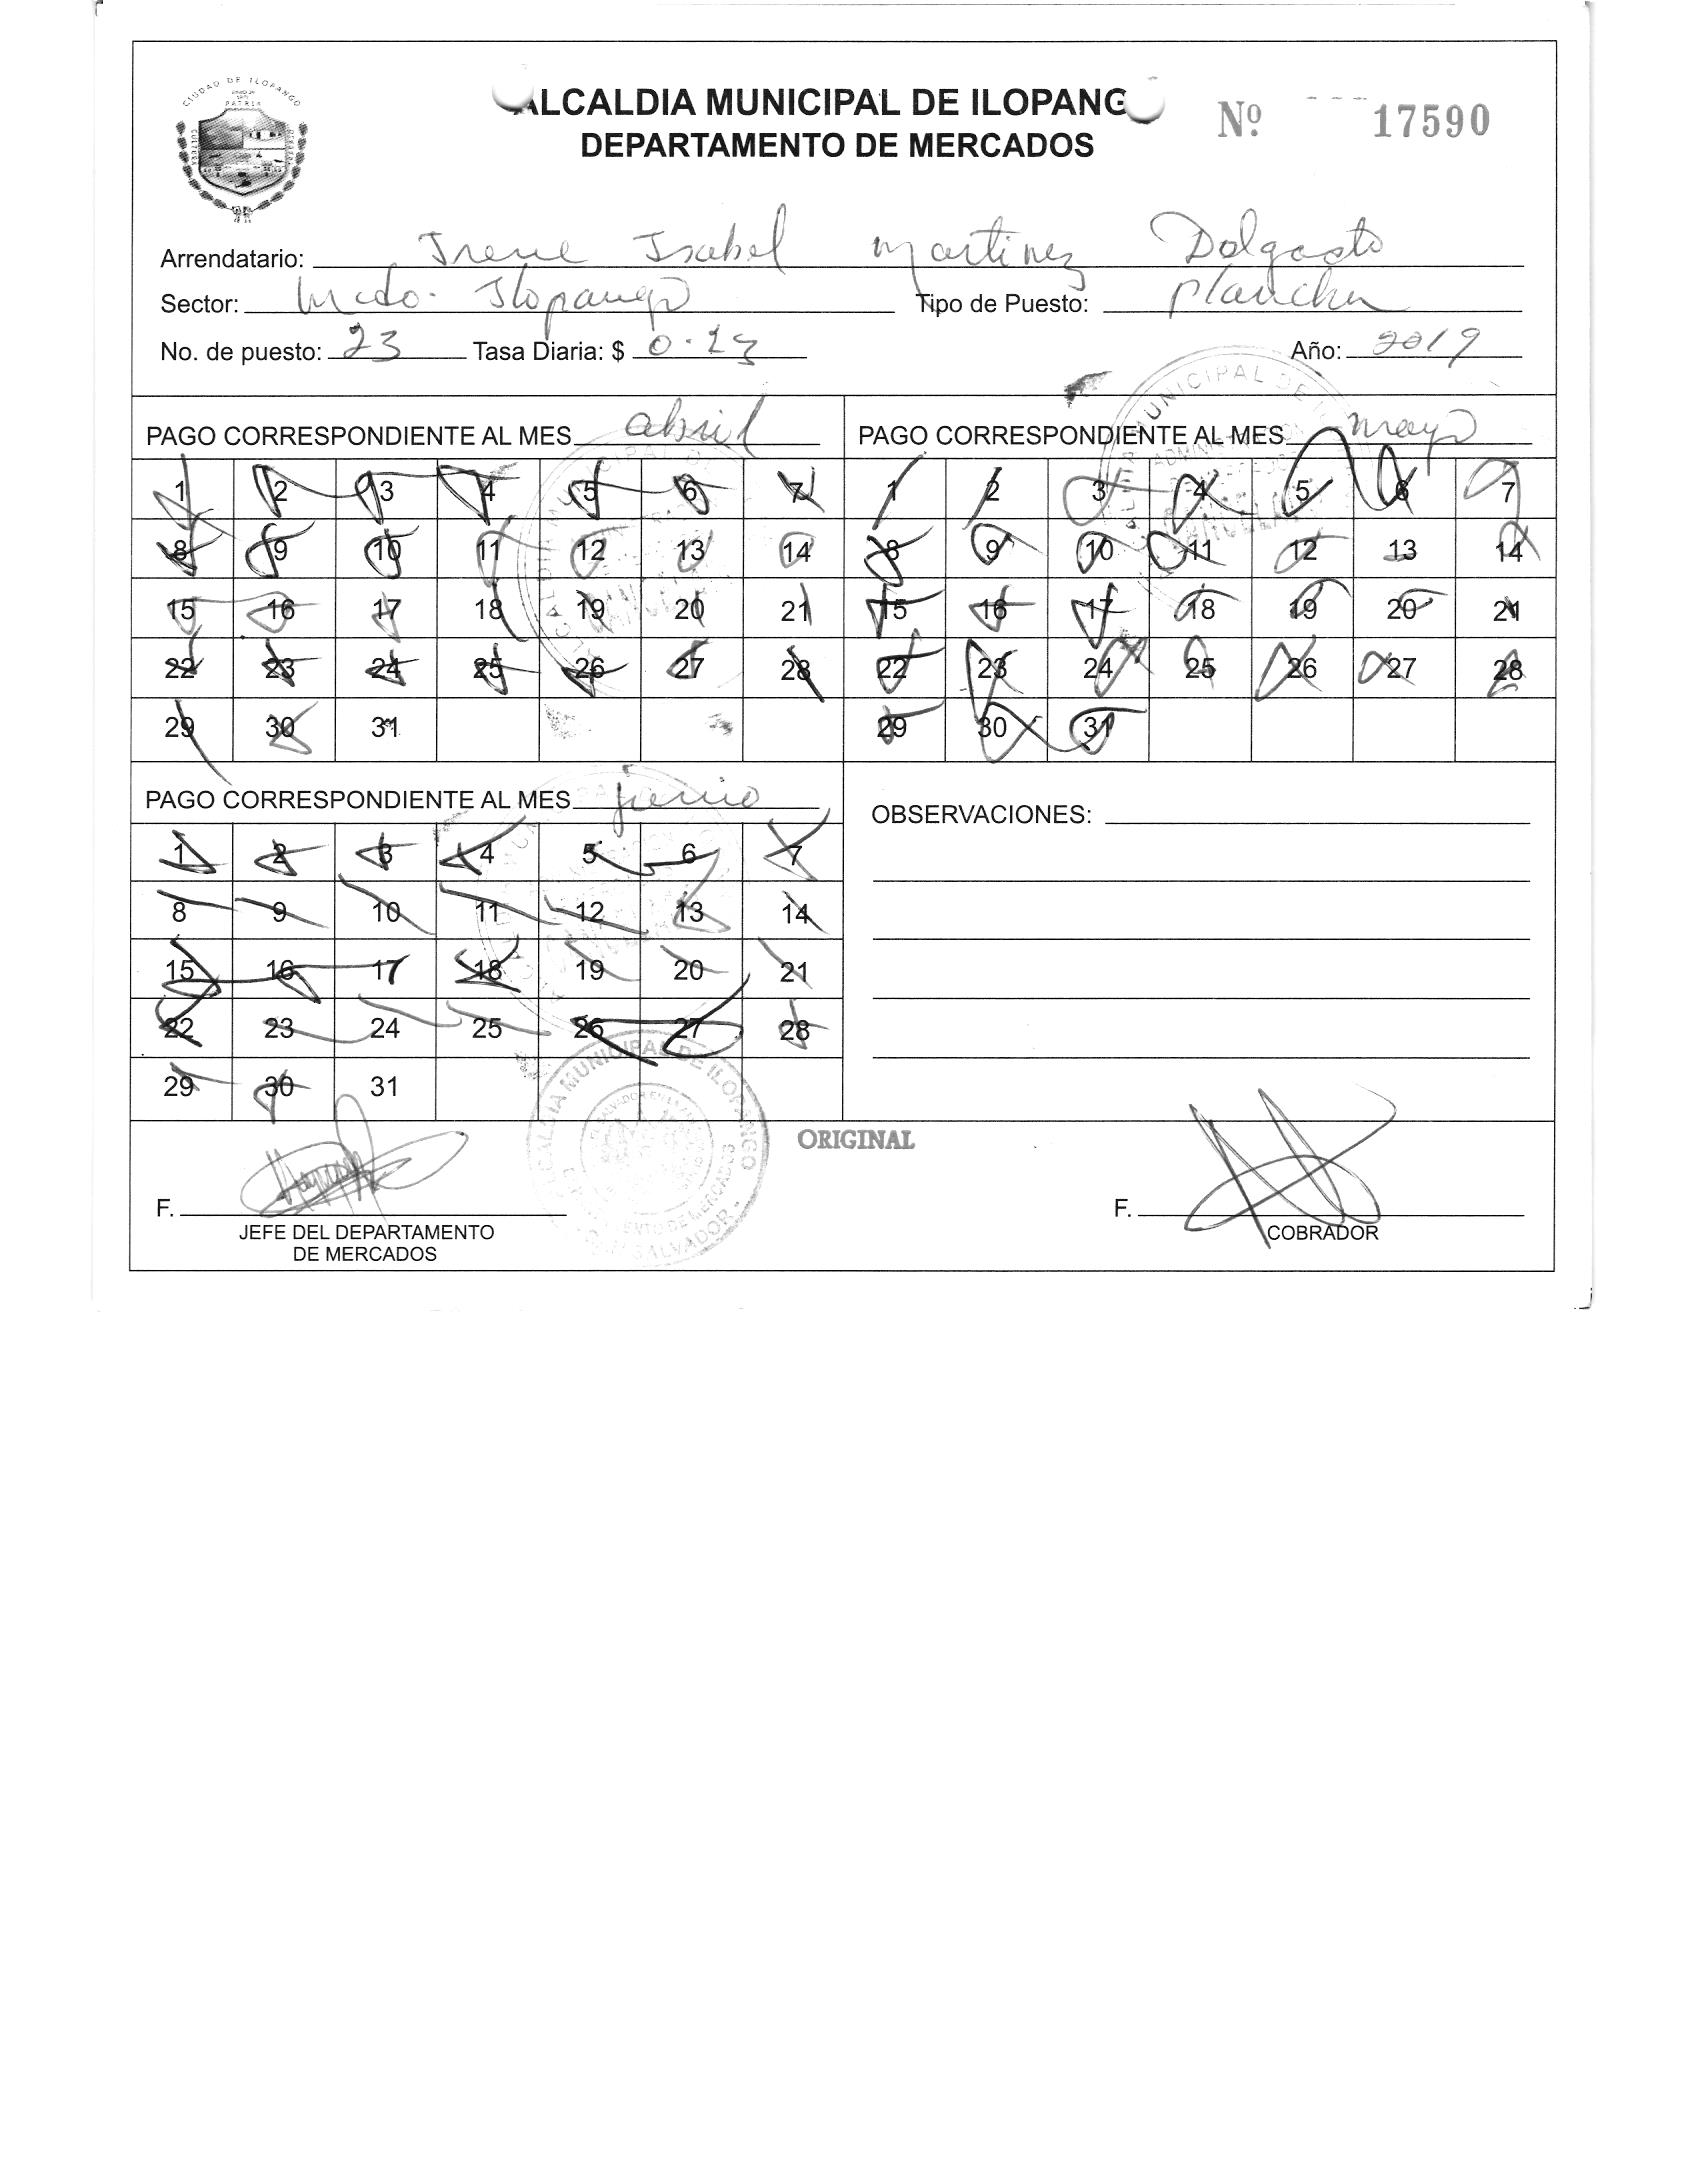 CIUDAD DE ILOPANGO
PATRIA
ALCALDIA MUNICIPAL DE ILOPANG
DEPARTAMENTO DE MERCADOS
Nº 17590
Arrendatario: Irene Isabel Martinez
Sector: Mcdo. Ilopango Tipo de Puesto: plancha
No. de puesto: 23 Tasa Diaria: $ 0.23 Año: 2019
PAGO CORRESPONDIENTE AL MES abril
1 2 3 4 5 6 7
8 9 10 11 12 13 14
15 16 17 18 19 20 21
22 23 24 25 26 27 28
29 30 31
PAGO CORRESPONDIENTE AL MES mayo
1 2 3 4 5 6 7
8 9 10 11 12 13 14
15 16 17 18 19 20 21
22 23 24 25 26 27 28
29 30 31
PAGO CORRESPONDIENTE AL MES junio
1 2 3 4 5 6 7
8 9 10 11 12 13 14
15 16 17 18 19 20 21
22 23 24 25 26 27 28
29 30 31
OBSERVACIONES:
ALCALDIA MUNICIPAL DE ILOPANGO
ORIGINAL
F.
JEFE DEL DEPARTAMENTO
DE MERCADOS
F.
COBRADOR